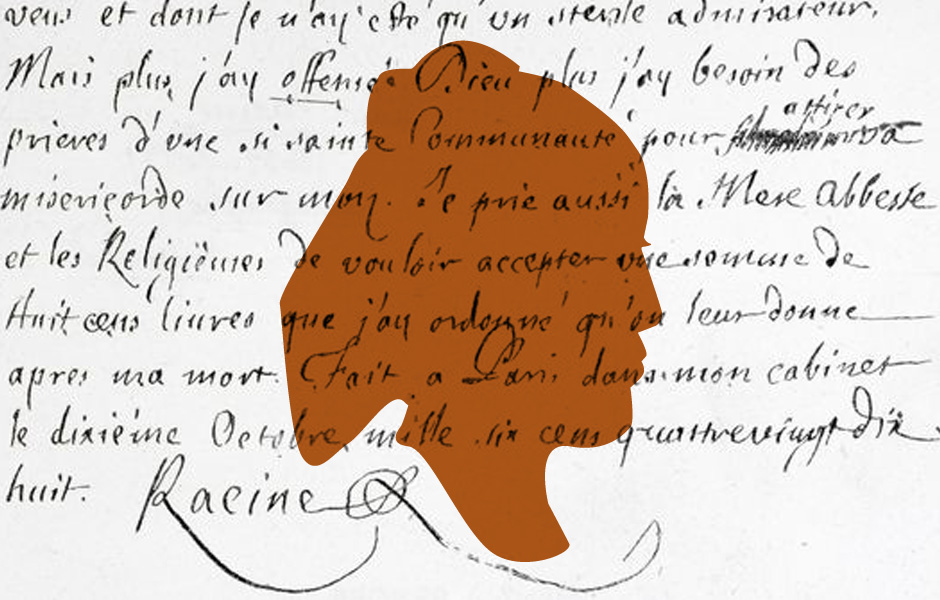 veux et dont je n'ay esté qu'un sterile admirateur.
Mais plus j'ay offensé Dieu plus j'ay besoin des
prieres d'une si sainte Communauté pour attirer sa
misericorde sur moy. Je prie aussi la Mere Abbesse
et les Religieuses de vouloir accepter une somme de
Huit cens livres que j'ay ordonné qu'on leur donne
apres ma mort. Fait a Paris dans mon cabinet
le dixiéme Octobre mille six cens quattrevingt dix
huit. Racine